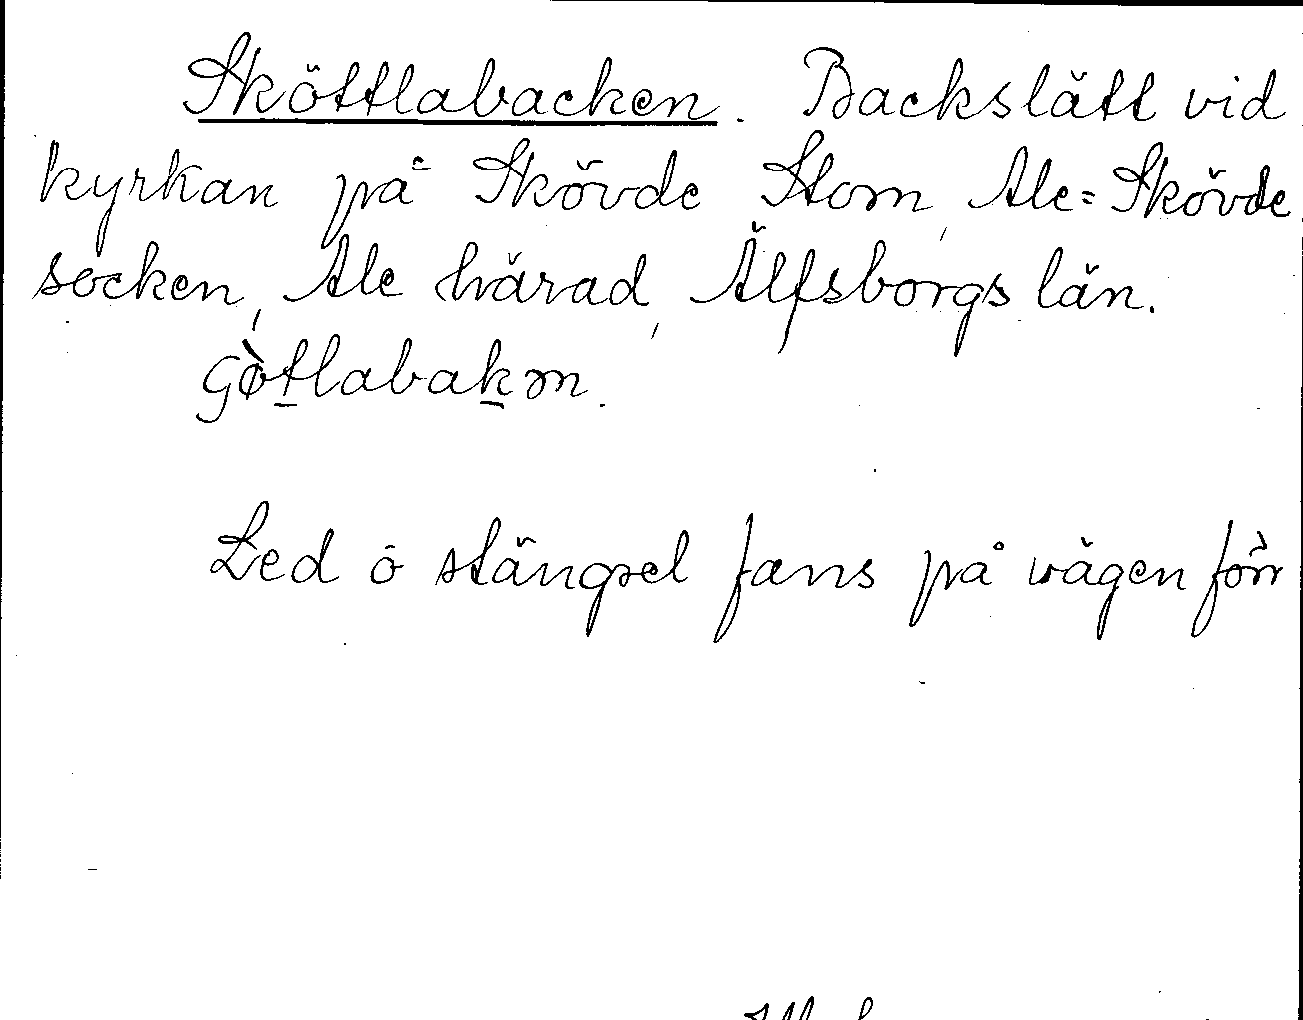 Sköttlabacken. Backslätt vid
kyrkan på Skövde Stom, Ale=Skövde
socken, Ale härad, Älfsborgs län.
gø̀tlabakən.
Led ō stängsel fans på vägen förr